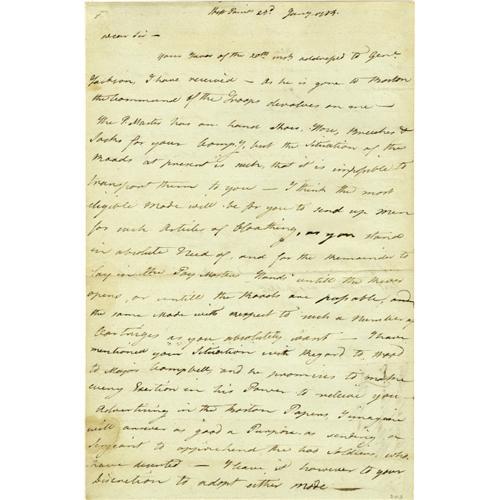 West Point 23d Jany 1784.
Dear Sir —
Your Favor of the 20th inst. addressed to Genl.
Jackson, I have received — As he is gone to Boston
the Command of the Troops devolves on me —
The P. Master has on hand Shoes, Hose, Breeches &
Socks for your Compy, but the situation of the
Roads at present is such, that it is impossible to
transport them to you — I think the most
eligible Mode will be for you to send up men
for such Articles of Cloathing, as you stand
in absolute Need of, and for the remainder to
lay in the Pay Master Hands untill the River
opens, or untill the Roads are passable, and
the same Mode with respect to such a Number of
Cartridges as you absolutely want — I have
mentioned your Situation with Regard to Wood
to Major Campbell and he promises to make
every Exertion in his Power to relieve you —
Advertising in the Boston Papers I imagine
will answer as good a Purpose as sending a
Sergeant to apprehend the Soldiers, who
have deserted — I leave it however to your
Discretion to adopt either Mode —